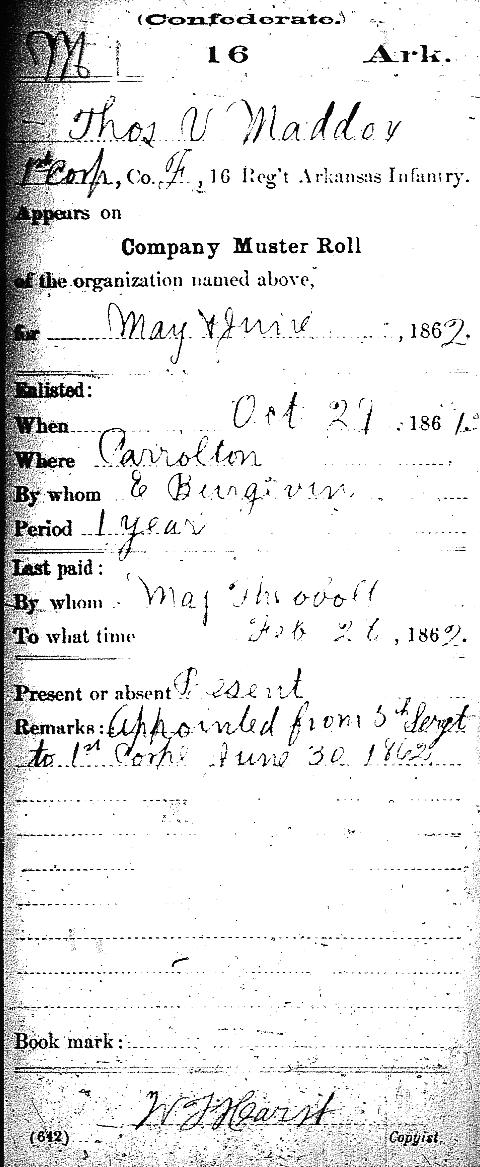 (Confederate.)
M 16 Ark.
Thos V Maddox
1st Corp, Co. F, 16 Reg't Arkansas Infantry.
Appears on
Company Muster Roll
of the organization named above,
for May & June, 1862.
Enlisted:
When Oct 29, 1861.
Where Carrolton
By whom E Burgevin
Period 1 year
Last paid:
By whom Maj
To what time Feb 28, 1862.
Present or absent Present
Remarks: Appointed from 5th Sergt
to 1st Corpl June 30 1862
Book mark:
(642) Copyist.